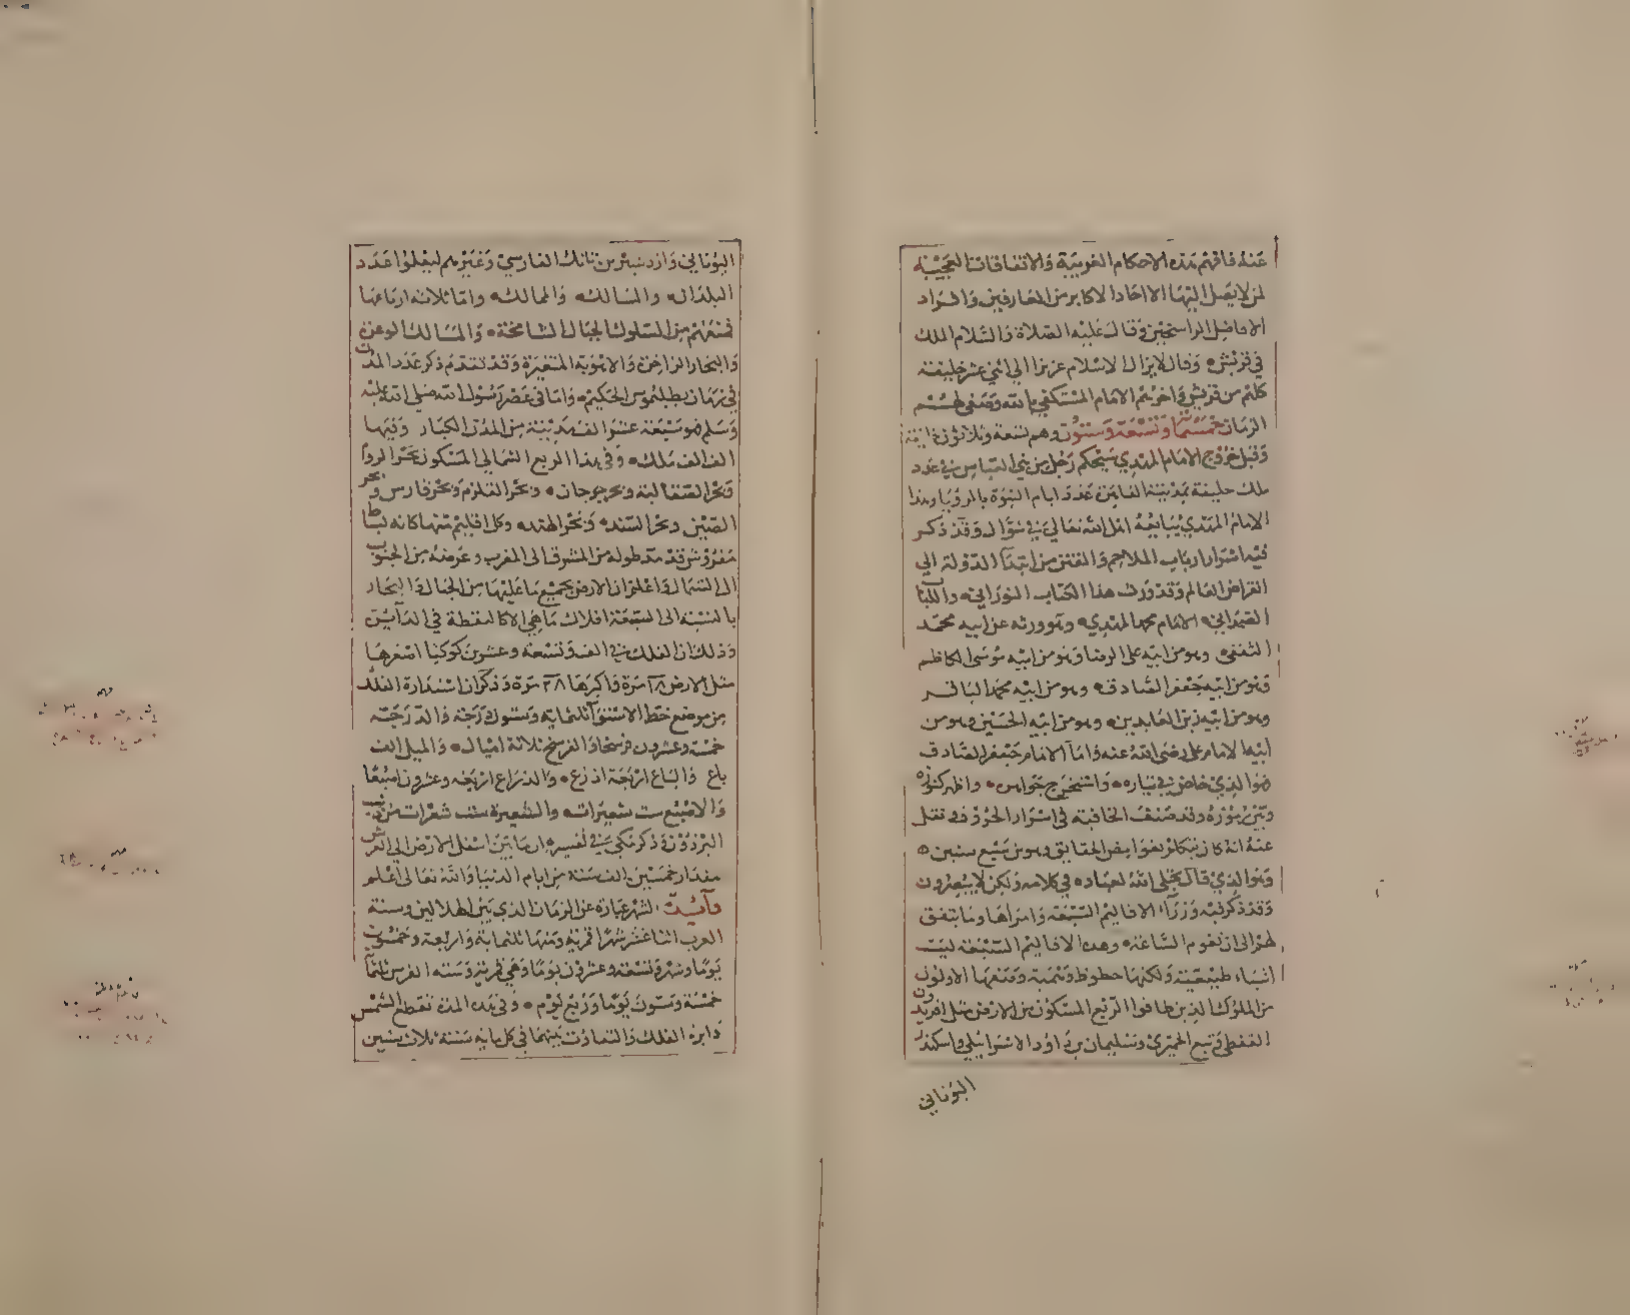 عنه فافهم هذه الاحكام الغريبة والاتفاقات العجيبة
لمن لا يصل اليها الا احاد الاكابر من العارفين وافراد
الافاضل الراسخين وقال عليه الصلاة والسلام الملك
في قريش وقال لا يزال الاسلام عزيزا الي اثني عشر خليفة
كلهم من قريش واخرهم الامام المستكفي بالله وقد مضى لهم من
الزمان خمسمائة وتسعة وستون وهم تسعة وثلاثون خليفة
وقبل خروج الامام المهدي سيحكم رجل من بني العباس في عدد
ملك خليفة بمدينة عدد ايام النبوة بالرؤيا وهذا
الامام المهدي يبايعه اهل الله تعالي في شوال وقد ذكر
فيه اسرار ارباب الملاحم والفتن من ابتدا الدولة الي
انقراض العالم وقد ورث هذا الكتاب النوراني واللباب
الصمداني الامام محمد المهدي وهو ورثه عن ابيه محمد
وهو من ابيه علي الرضا وهو من ابيه موسى الكاظم
وهو من ابيه جعفر الصادق وهو من ابيه محمد الباقر
وهو من ابيه زين العابدين وهو من ابيه الحسين وهو من
ابيه الامام علي رضي الله عنه واما الامام جعفر الصادق
هو الذي خاض في تياره واستخرج جواهره واظهر كنوزه
وبين رموزه وقد صنف الخافية في اسرار الحروف وقد نقل
عنه انه كان يتكلم بغوامض الحقايق وهو من سبع سنين
وهو الذي قال تجلى الله لعباده في كلامه ولكن لا يبصرون
وقد ذكر فيه وزراء الاقاليم السبعة وامراها وما يتفق
لهم الى ان تقوم الساعة وهذه الاقاليم السبعة ليست
اشياء طبيعية ولكنها خطوط وهمية وضعها الاولون
من الملوك الذين طافوا الربع المسكون من الارض مثل افريدون
النبطي وتبع الحميري وسليمان بن داود الاسرائيلي واسكندر
اليوناني
اليوناني وازدشير بن بابك الفارسي وغيرهم ليعلموا عدد
البلدان والمسالك والممالك واما ثلاثة ارباعها
فمنعهم من السلوك الجبال الشامخة والمسالك الوعرة
والبحار الزاخرة والاهوية المتغيرة وقد تقدم ذكر عدد المدن
في زمان بطلموس الحكيم واما في عصر رسول الله صلى الله عليه
وسلم هو سبعة عشر الف مدينة من المدن الكبار وفيها
الف الف ملك وفي هذا الربع الشمالي المسكون بحر الروم
وبحر الصقالبة وبحر جرجان وبحر القلزم وبحر فارس وبحر
الصين وبحر السند وبحر الهند وكل اقليم منها كانه بساط
مفروش قد مد طوله من المشرق الى المغرب وعرضه من الجنوب
الى الشمال واعلم ان الارض بجميع ما عليها من الجبال والبحار
بالنسبة الى السبعة افلاك ما هي الا كالنقطة في الدائرة
وذلك ان الفلك فيه الف وتسعة وعشرين كوكبا اصغرها
مثل الارض ١٨ مرة واكبرها ٣٨ مرة وذكر ان استدارة الفلك
من موضع خط الاستوا ثلثمائة وستون درجة والدرجة
خمسة وعشرون فرسخا والفرسخ ثلاثة اميال والميل الف
باع والباع اربعة اذرع والذراع اربعة وعشرون اصبعا
والاصبع ست شعيرات والشعيرة ست شعرات من ذنب
البرذون وذكر مكي في تفسيره ان ما بين اسفل الارض الى العرش
مقدار خمسين الف سنة من ايام الدنيا والله تعالى اعلم
الشهر عبارة عن الزمان الذي بين الهلالين وسنة
العرب اثنا عشر شهرا قمرية ومنها ثلثمائة واربعة وخمسون
يوما وشهر وتسعة وعشرون يوما وهي قمرية وسنة الفرس ثلثمائة
خمسة وستون يوما وربع يوم وفي هذه المدة تقطع الشمس
دايرة الفلك والتفاوت بينهما في كل ماية سنة ثلاث سنين